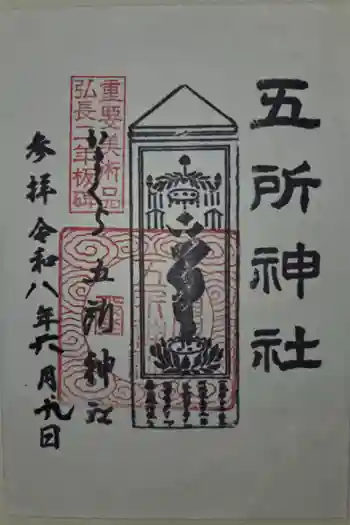 五所神社
重要美術品
弘長二年板碑
かまくら五所神社
参拝令和八年六月九日